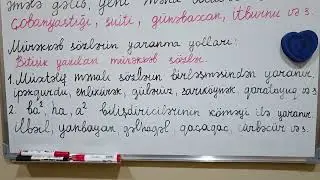 əmələ gəlib, yeni məna
Çobanyastığı, südü, günəbaxan, itburnu və s.
Mürəkkəb sözlərin yaranma yolları:
Bitişik yazılan mürəkkəb sözlər.
1. Müxtəlif mənalı sözlərin birləşməsindən yaranır.
ipəkqurdu, enlikürək, gülərüz, sarıköynək, qaratoyuq və s
2. ba², ha, a² bitişdiricilərinin köməyi ilə yaranır.
ilbəil, yanbayan, gəlhagəl, qaçaqaç, cürbəcür və s.